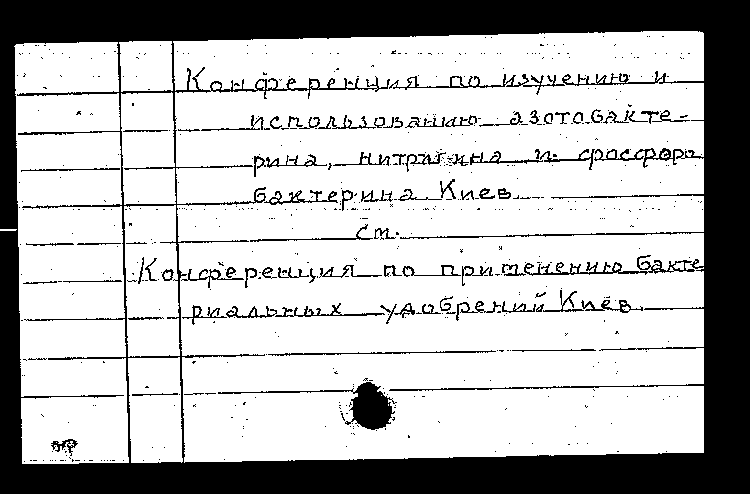 Конференция по изучению и
использованию азотобакте-
рина, нитрагина и фосфоро
бактерина Киев
см.
Конференция по применению бакте
риальных удобрений Киев.